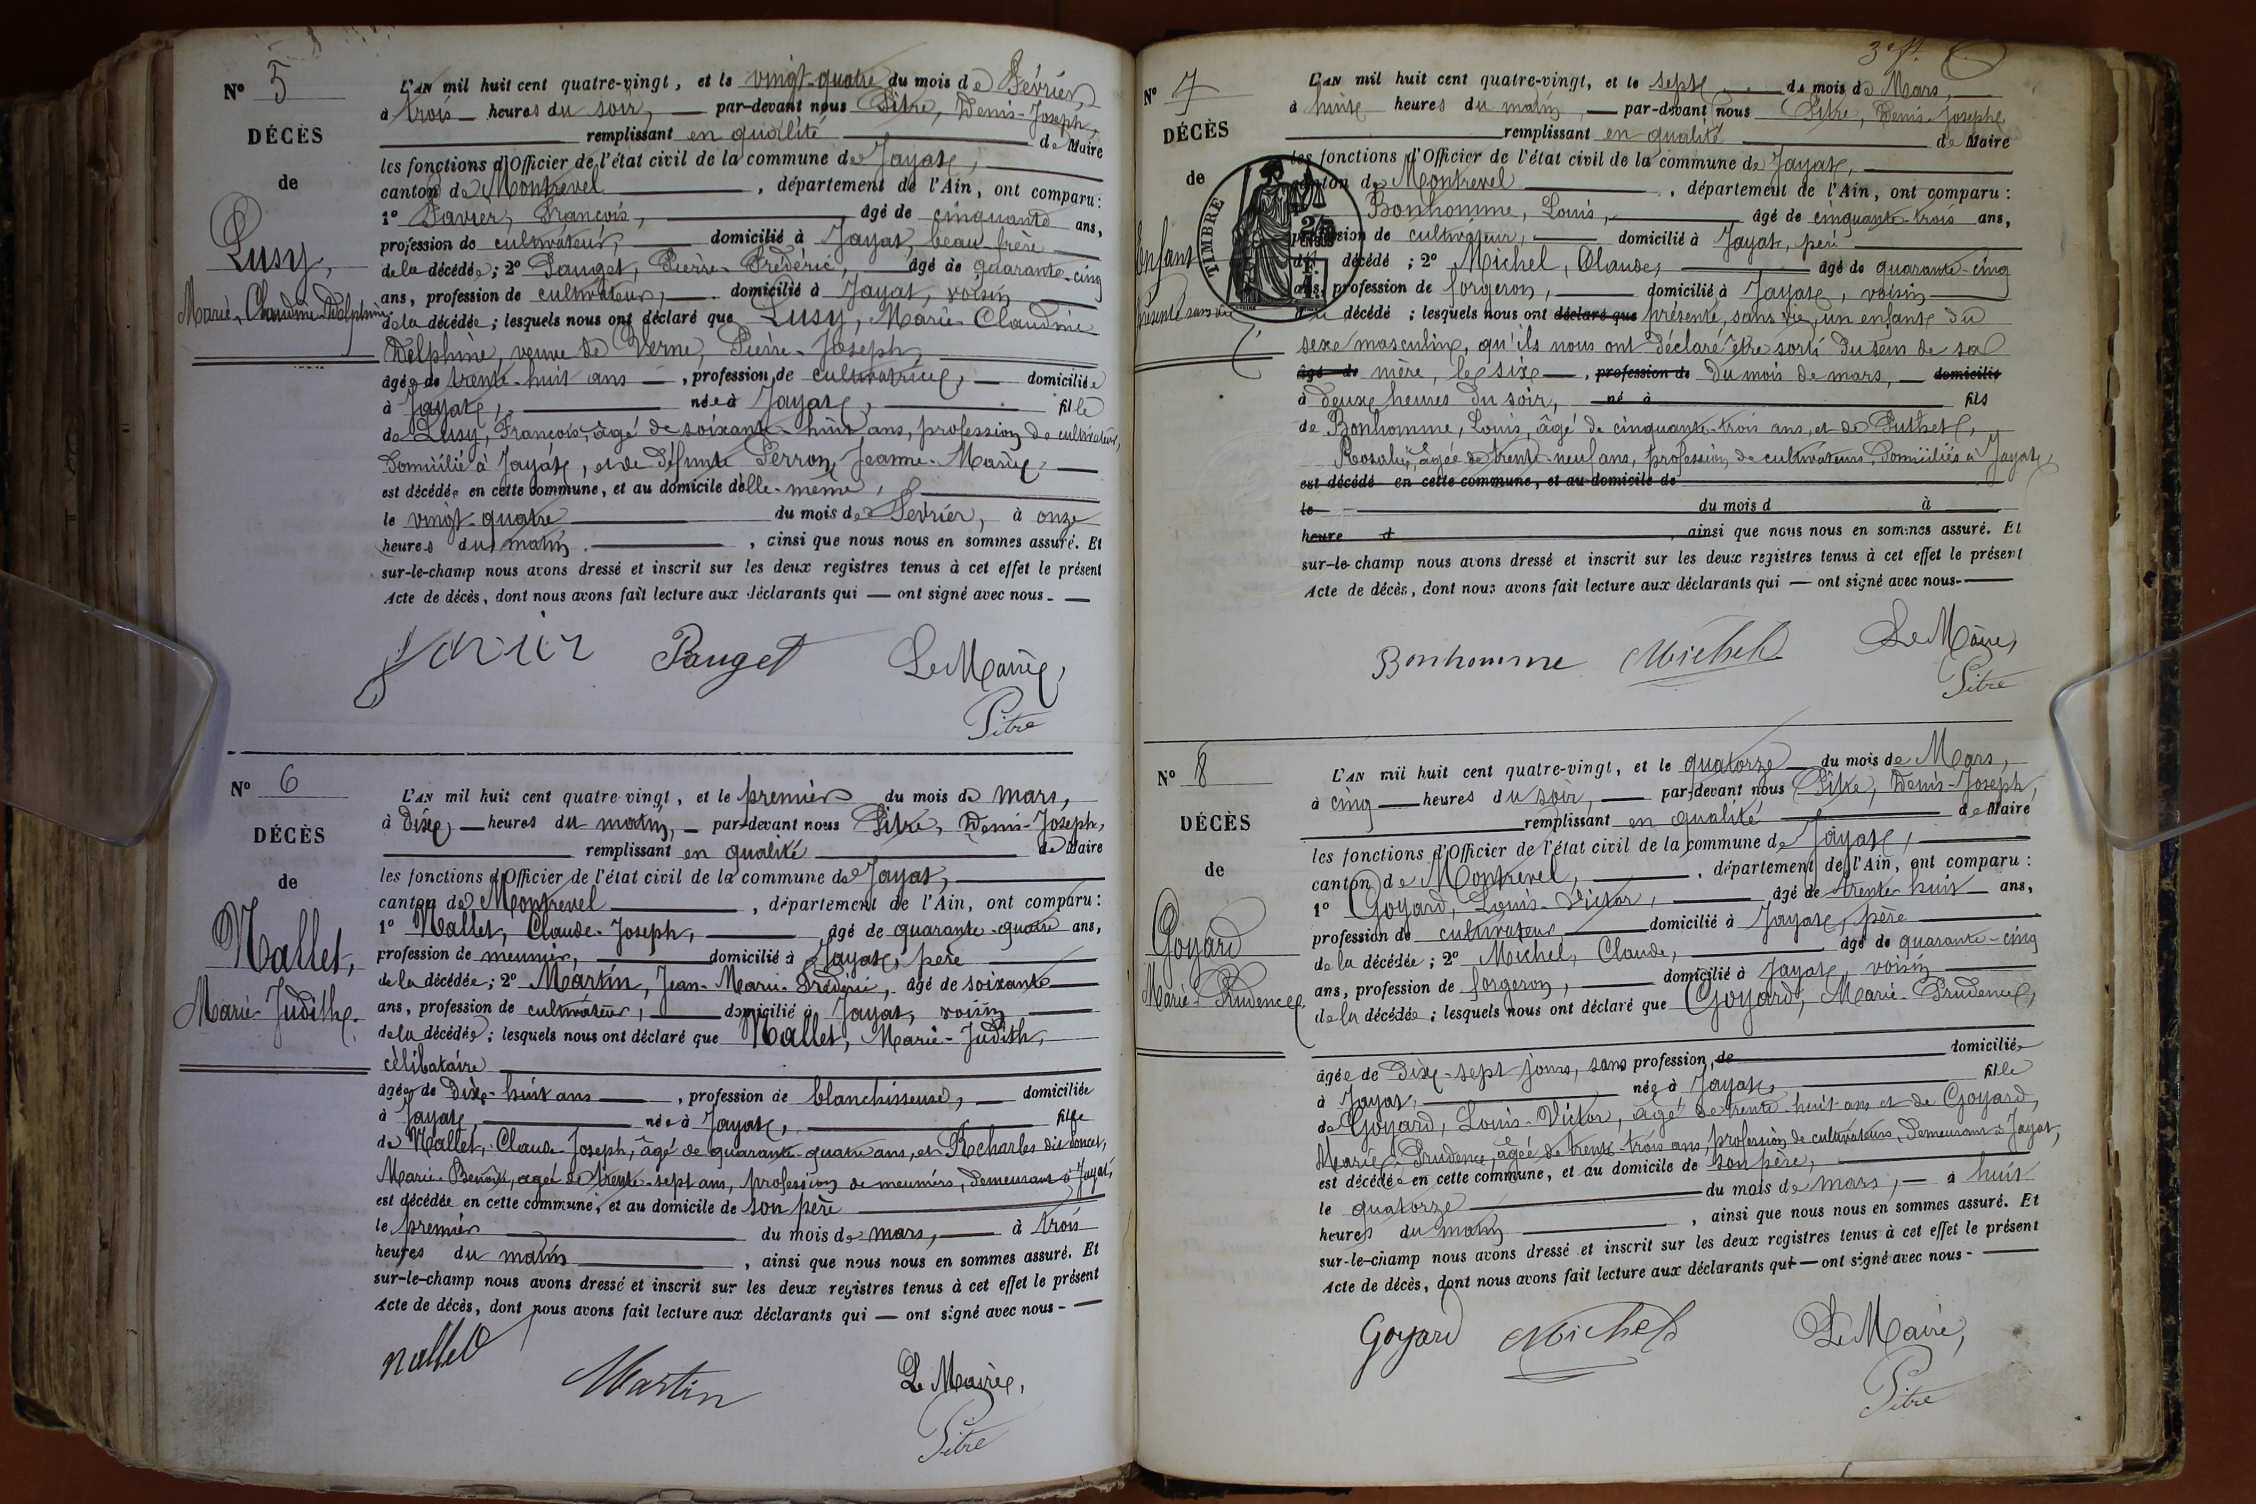 N° 5
DÉCÈS
de
Lusy,
Marie-Claudine-Delphine
L'AN mil huit cent quatre-vingt, et le vingt-quatre du mois de Février,
à trois heures du soir, par-devant nous Pitre, Denis-Joseph,
remplissant en qualité de Maire
les fonctions d'Officier de l'état civil de la commune de Jayat,
canton de Montrevel, département de l'Ain, ont comparu :
1° Favier, François, âgé de cinquante ans,
profession de cultivateur, domicilié à Jayat, beau-frère
de la décédée ; 2° Pauget, Pierre-Frédéric, âgé de quarante-cinq
ans, profession de cultivateur, domicilié à Jayat, voisin
de la décédée ; lesquels nous ont déclaré que Lusy, Marie-Claudine
Delphine, veuve de Verne, Pierre-Joseph,
âgée de trente-huit ans, profession de cultivatrice, domiciliée
à Jayat, née à Jayat, fille
de Lusy, François, âgé de soixante-huit ans, profession de cultivateur,
domicilié à Jayat, et de défunte Perron, Jeanne-Marie,
est décédée en cette commune, et au domicile d'elle-même,
le vingt-quatre du mois de Février, à onze
heures du matin, ainsi que nous nous en sommes assuré. Et
sur-le-champ nous avons dressé et inscrit sur les deux registres tenus à cet effet le présent
Acte de décès, dont nous avons fait lecture aux déclarants qui — ont signé avec nous.
favier Pauget Le Maire,
Pitre
N° 6
DÉCÈS
de
Nallet,
Marie-Judith.
L'AN mil huit cent quatre-vingt, et le premier du mois de mars,
à dix heures du matin, par-devant nous Pitre, Denis-Joseph,
remplissant en qualité de Maire
les fonctions d'Officier de l'état civil de la commune de Jayat,
canton de Montrevel, département de l'Ain, ont comparu :
1° Nallet, Claude-Joseph, âgé de quarante-quatre ans,
profession de meunier, domicilié à Jayat, père
de la décédée ; 2° Martin, Jean-Marie-Frédéric, âgé de soixante
ans, profession de cultivateur, domicilié à Jayat, voisin
de la décédée ; lesquels nous ont déclaré que Nallet, Marie-Judith,
célibataire
âgée de dix-huit ans, profession de blanchisseuse, domiciliée
à Jayat, née à Jayat, fille
de Nallet, Claude-Joseph, âgé de quarante-quatre ans, et Richarles dit
Marie-Benoîte, âgée de trente-sept ans, profession de meuniers, demeurant à Jayat,
est décédée en cette commune, et au domicile de son père
le premier du mois de mars, à trois
heures du matin, ainsi que nous nous en sommes assuré. Et
sur-le-champ nous avons dressé et inscrit sur les deux registres tenus à cet effet le présent
Acte de décès, dont nous avons fait lecture aux déclarants qui — ont signé avec nous.
nallet Martin Le Maire,
Pitre
N° 7
DÉCÈS
de
Enfant
présenté sans vie
TIMBRE
L'AN mil huit cent quatre-vingt, et le sept du mois de Mars,
à huit heures du matin, par-devant nous Pitre, Denis-Joseph
remplissant en qualité de Maire
les fonctions d'Officier de l'état civil de la commune de Jayat,
canton de Montrevel, département de l'Ain, ont comparu :
Bonhomme, Louis, âgé de cinquante-trois ans,
profession de cultivateur, domicilié à Jayat, père
du décédé ; 2° Michel, Claude, âgé de quarante-cinq
ans, profession de forgeron, domicilié à Jayat, voisin
du décédé ; lesquels nous ont déclaré que présenté, sans vie, un enfant du
sexe masculin, qu'ils nous ont déclaré être sorti du sein de sa
âgé de mère, le six, profession de du mois de mars, domicilié
à deux heures du soir, né à fils
de Bonhomme, Louis, âgé de cinquante-trois ans, et de Puthet,
Rosalie, âgée de trente-neuf ans, profession de cultivateurs, domiciliés à Jayat,
est décédé en cette commune, et au domicile de
le du mois d à
heure d ainsi que nous nous en sommes assuré. Et
sur-le-champ nous avons dressé et inscrit sur les deux registres tenus à cet effet le présent
Acte de décès, dont nous avons fait lecture aux déclarants qui — ont signé avec nous.
Bonhomme Michel Le Maire,
Pitre
N° 8
DÉCÈS
de
Goyard
Marie-Prudence
L'AN mil huit cent quatre-vingt, et le quatorze du mois de Mars,
à cinq heures du soir, par-devant nous Pitre, Denis-Joseph,
remplissant en qualité de Maire
les fonctions d'Officier de l'état civil de la commune de Jayat,
canton de Montrevel, département de l'Ain, ont comparu :
1° Goyard, Louis-Victor, âgé de trente-huit ans,
profession de cultivateur domicilié à Jayat, père
de la décédée ; 2° Michel, Claude, âgé de quarante-cinq
ans, profession de forgeron, domicilié à Jayat, voisin
de la décédée ; lesquels nous ont déclaré que Goyard, Marie-Prudence,
âgée de dix-sept jours, sans profession, de domiciliée
à Jayat, née à Jayat, fille
de Goyard, Louis-Victor, âgé de trente-huit ans et de Goyard,
Marie-Prudence, âgée de trente-trois ans, profession de cultivateurs, demeurant à Jayat,
est décédée en cette commune, et au domicile de son père,
le quatorze du mois de mars, à huit
heures du matin, ainsi que nous nous en sommes assuré. Et
sur-le-champ nous avons dressé et inscrit sur les deux registres tenus à cet effet le présent
Acte de décès, dont nous avons fait lecture aux déclarants qui — ont signé avec nous.
Goyard Michel Le Maire,
Pitre